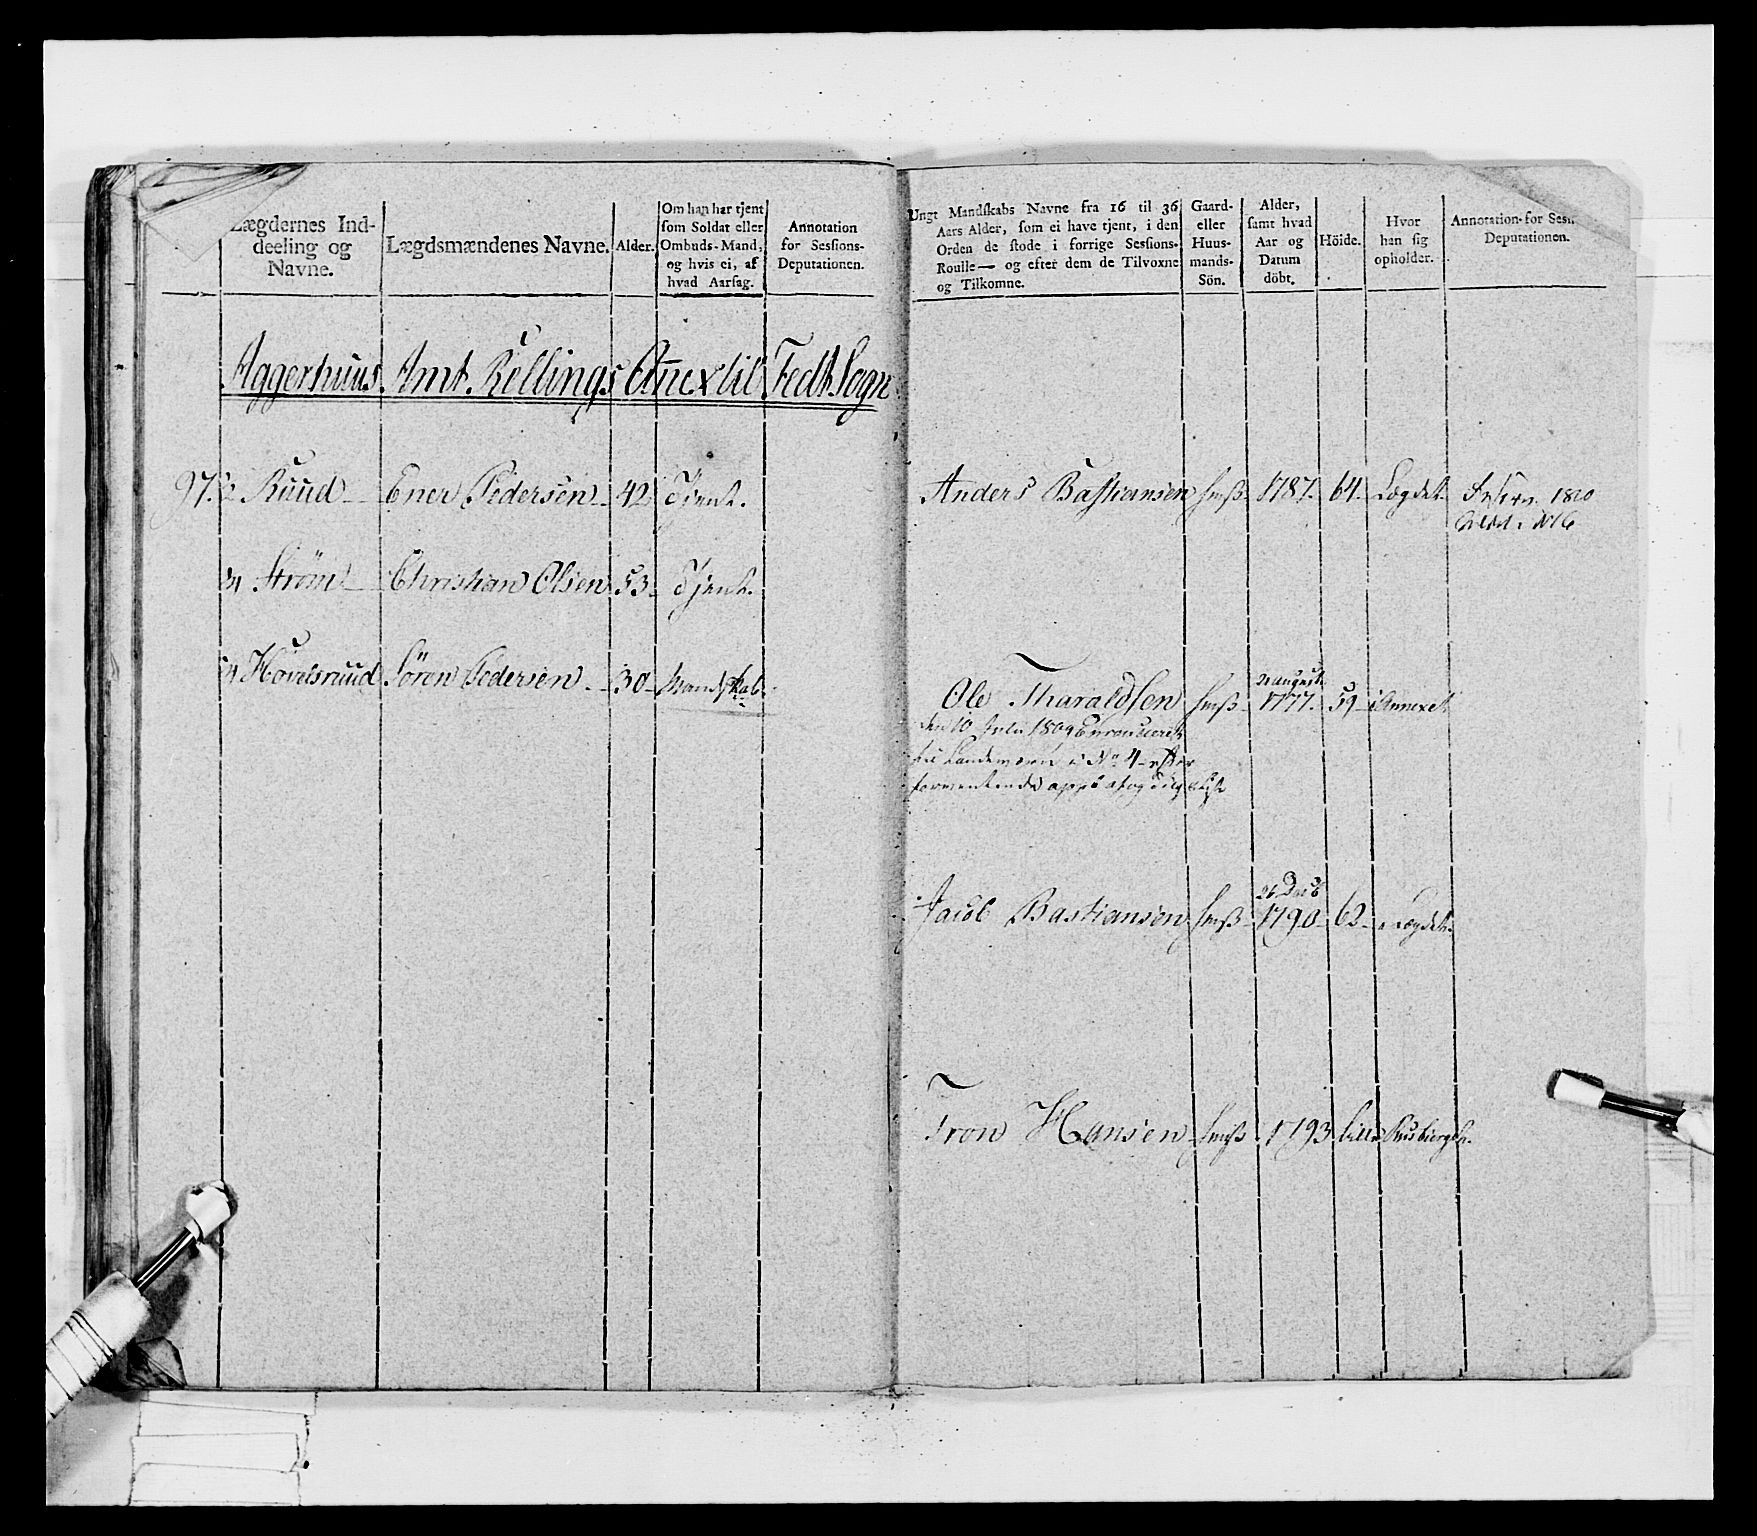 Lægdernes Ind-
deeling og
Navne.
Lægdsmændenes Navne.
Alder.
Om han har tjent
som Soldat eller
Ombuds-Mand,
og hvis ei, af
hvad Aarsag.
Annotation
for Sessions-
Deputationen.
Aggerhuus Amt. Kellings Anex til Fedt Sogn
97. 1/2 Ruud Ener Pedersen 42 Tjent.
Strøm Christian Olsen 53 Tjent.
Hovelsruud Søren Pedersen 30 Mandskab.
Ungt Mandskabs Navne fra 16 til 36
Aars Alder, som ei have tjent, i den
Orden de stode i forrige Sessions-
Roulle— og efter dem de Tilvoxne
og Tilkomne.
Gaard-
eller
Huus-
mands-
Sön.
Alder,
samt hvad
Aar og
Datum
döbt.
Höide.
Hvor
han sig
opholder.
Annotation for Sess
Deputationen.
Anders Bastiansen hmß 1787. 64. Lægdet 1810
No 6
august
Ole Tharaldsen hmß 1777. 59 i Annexet
den 10 Julii 1809
til Landeværn i No 4 efter
26 Decb
Jacob Bastiansen hmß 1790 62 i Lægdet.
Tron Hansen hmß 1793 lille